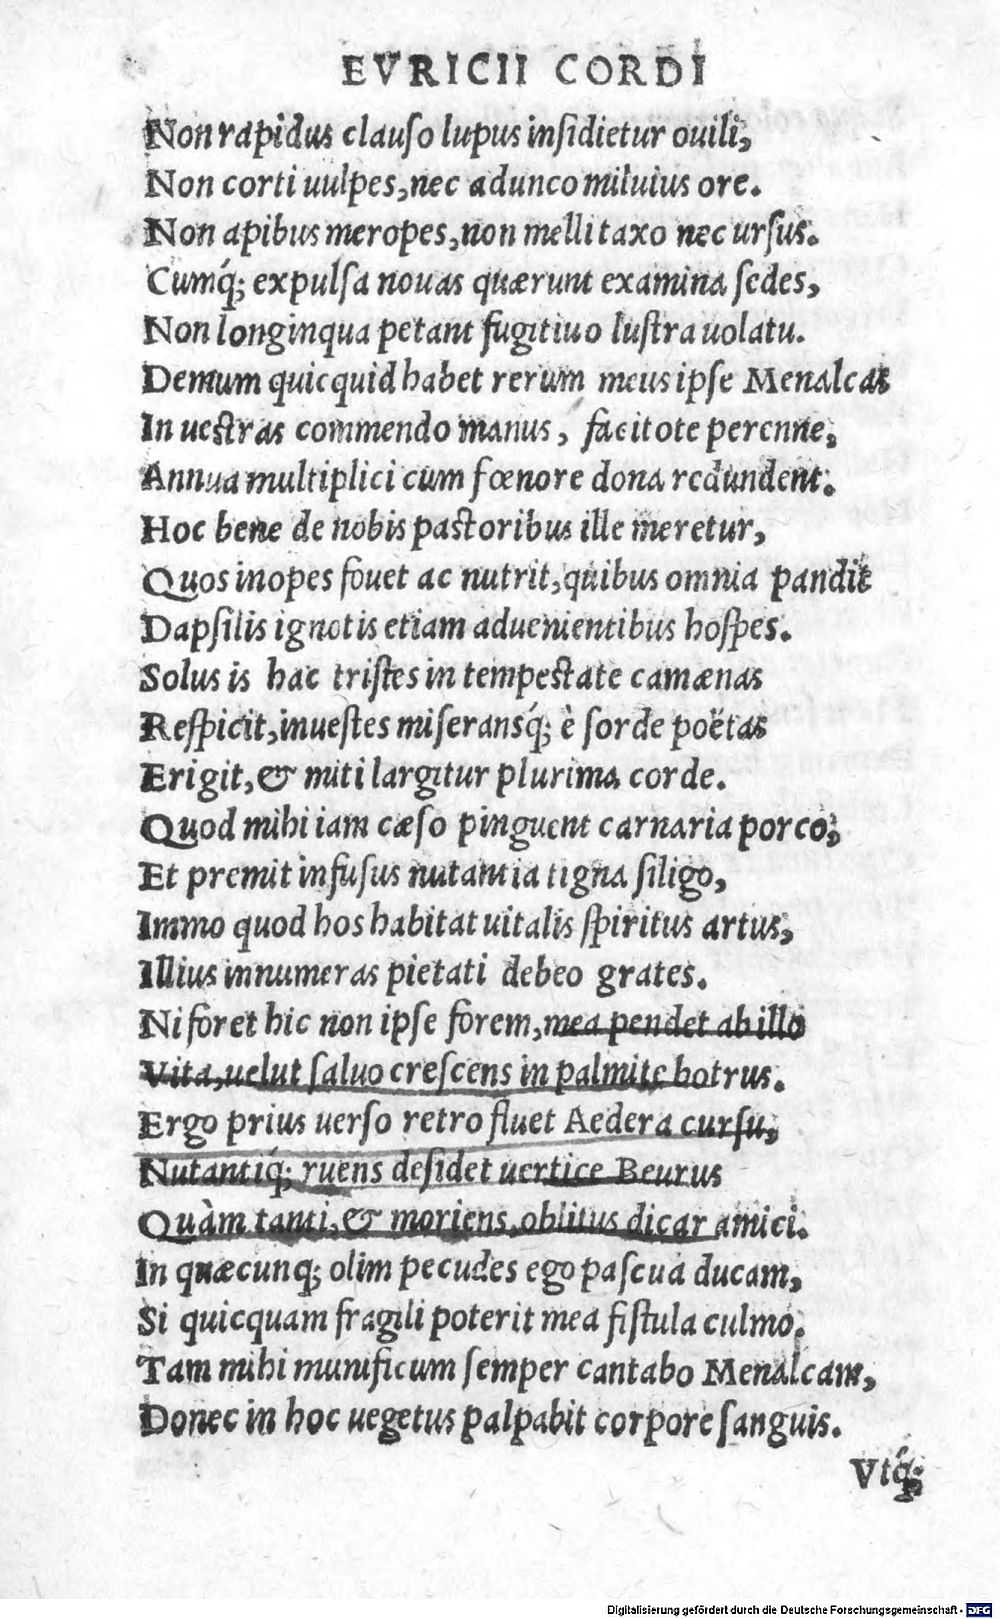 EVRICII CORDI
Non rapidus clauso lupus insidietur ouili,
Non corti uulpes, nec adunco miluius ore.
Non apibus meropes, non melli taxo nec ursus.
Cumq́; expulsa nouas quærunt examina sedes,
Non longinqua petant fugitiuo lustra uolatu.
Demum quicquid habet rerum meus ipse Menalcas
In uestras commendo manus, facitote perenne,
Annua multiplici cum fœnore dona redundent.
Hoc bene de nobis pastoribus ille meretur,
Quos inopes fouet ac nutrit, quibus omnia pandit
Dapsilis ignotis etiam aduenientibus hospes.
Solus is hac tristes in tempestate camænas
Respicit, inuestes miseransq́; è sorde poëtas
Erigit, & miti largitur plurima corde.
Quod mihi iam cæso pinguent carnaria porco,
Et premit infusus nutantia tigna siligo,
Immo quod hos habitat uitalis spiritus artus,
Illius innumeras pietati debeo grates.
Ni foret hic non ipse forem, mea pendet ab illo
Vita, uelut saluo crescens in palmite botrus.
Ergo prius uerso retro fluet Aedera cursu,
Nutantiq́; ruens desidet uertice Beurus
Quàm tanti, & moriens, oblitus dicar amici.
In quæcunq; olim pecudes ego pascua ducam,
Si quicquam fragili poterit mea fistula culmo,
Tam mihi munificum semper cantabo Menalcam,
Donec in hoc uegetus palpabit corpore sanguis.
Vtq́;
Digitalisierung gefördert durch die Deutsche Forschungsgemeinschaft - DFG